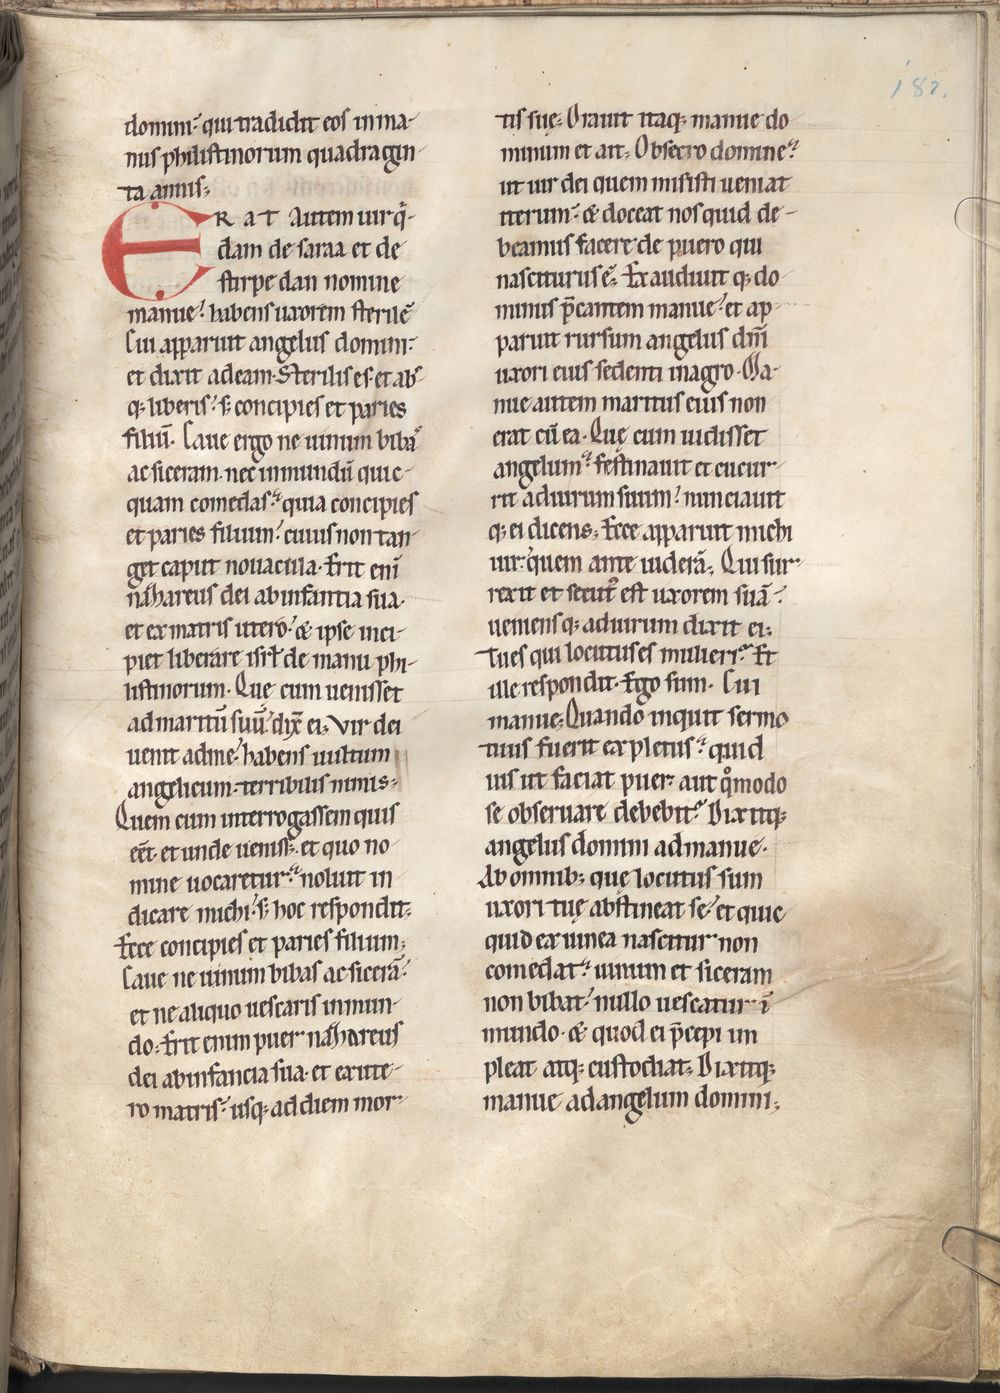 187.
domini. qui tradidit eos in ma-
nus philistinorum quadragin-
ta annis;
ERAT autem uir q̅-
dam de saraa et de
stirpe dan nomine
manue. habens uxorem sterilē
Cui apparuit angelus domini.
et dixit ad eam. Sterilis es et abs
q; liberis. s; concipies et paries
filiū. Caue ergo ne uinum bibas
ac siceram. nec inmundū quic-
quam comedas. quia concipies
et paries filium. cuius non tan-
get caput nouacula. Erit enī
nazareus dei ab infantia sua.
et ex matris utero. & ipse inci-
piet liberare isrł de manu phi-
listinorum. Quę cum uenisset
ad maritū suū. dix̅ ei; Vir dei
uenit ad me. habens uultum
angelicum. terribilis nimis;
Quem cum interrogassem quis
eēt. et unde uenisset. et quo no
mine uocaretur. noluit in
dicare michi. s; hoc respondit;
Ecce concipies et paries filium;
Caue ne uinum bibas ac sicerā.
et ne aliquo uescaris inmun-
do; Erit enim puer nazareus
dei ab infancia sua. et ex ute-
ro matris. usq; ad diem mor-
tis suę; Orauit itaq; manue do
minum et ait; Obsecro domine.
ut uir dei quem misisti ueniat
iterum. & doceat nos quid de-
beamus facere de puero qui
nasciturus ē. Exaudiuit q; do
minus p̄cantem manue. et ap-
paruit rursum angelus dnī
uxori eius sedenti in agro. Ma-
nue autem maritus eius non
erat cū ea. Quę cum uidisset
angelum. festinauit et cucur-
rit ad uirum suum. nunciauit
q; ei dicens; Ecce apparuit michi
uir. quem ante uiderā; Qui sur-
rexit et secut᷒ est uxorem suā.
ueniens q; ad uirum dixit ei;
Tu es qui locutus es mulieri. Et
ille respondit. Ego sum. Cui
manue; Quando inquit sermo
tuus fuerit expletus. quid
uis ut faciat puer. aut qͦmodo
se obseruare debebit. Dixitq;
angelus domini ad manue.
Ab omnib; que locutus sum
uxori tuę abstineat se. et quic
quid ex uinea nascitur non
comedat. uinum et siceram
non bibat. nullo uescatur ī
mundo. & quod ei p̄cepi im
pleat atq; custodiat; Dixitq;
manue ad angelum domini;